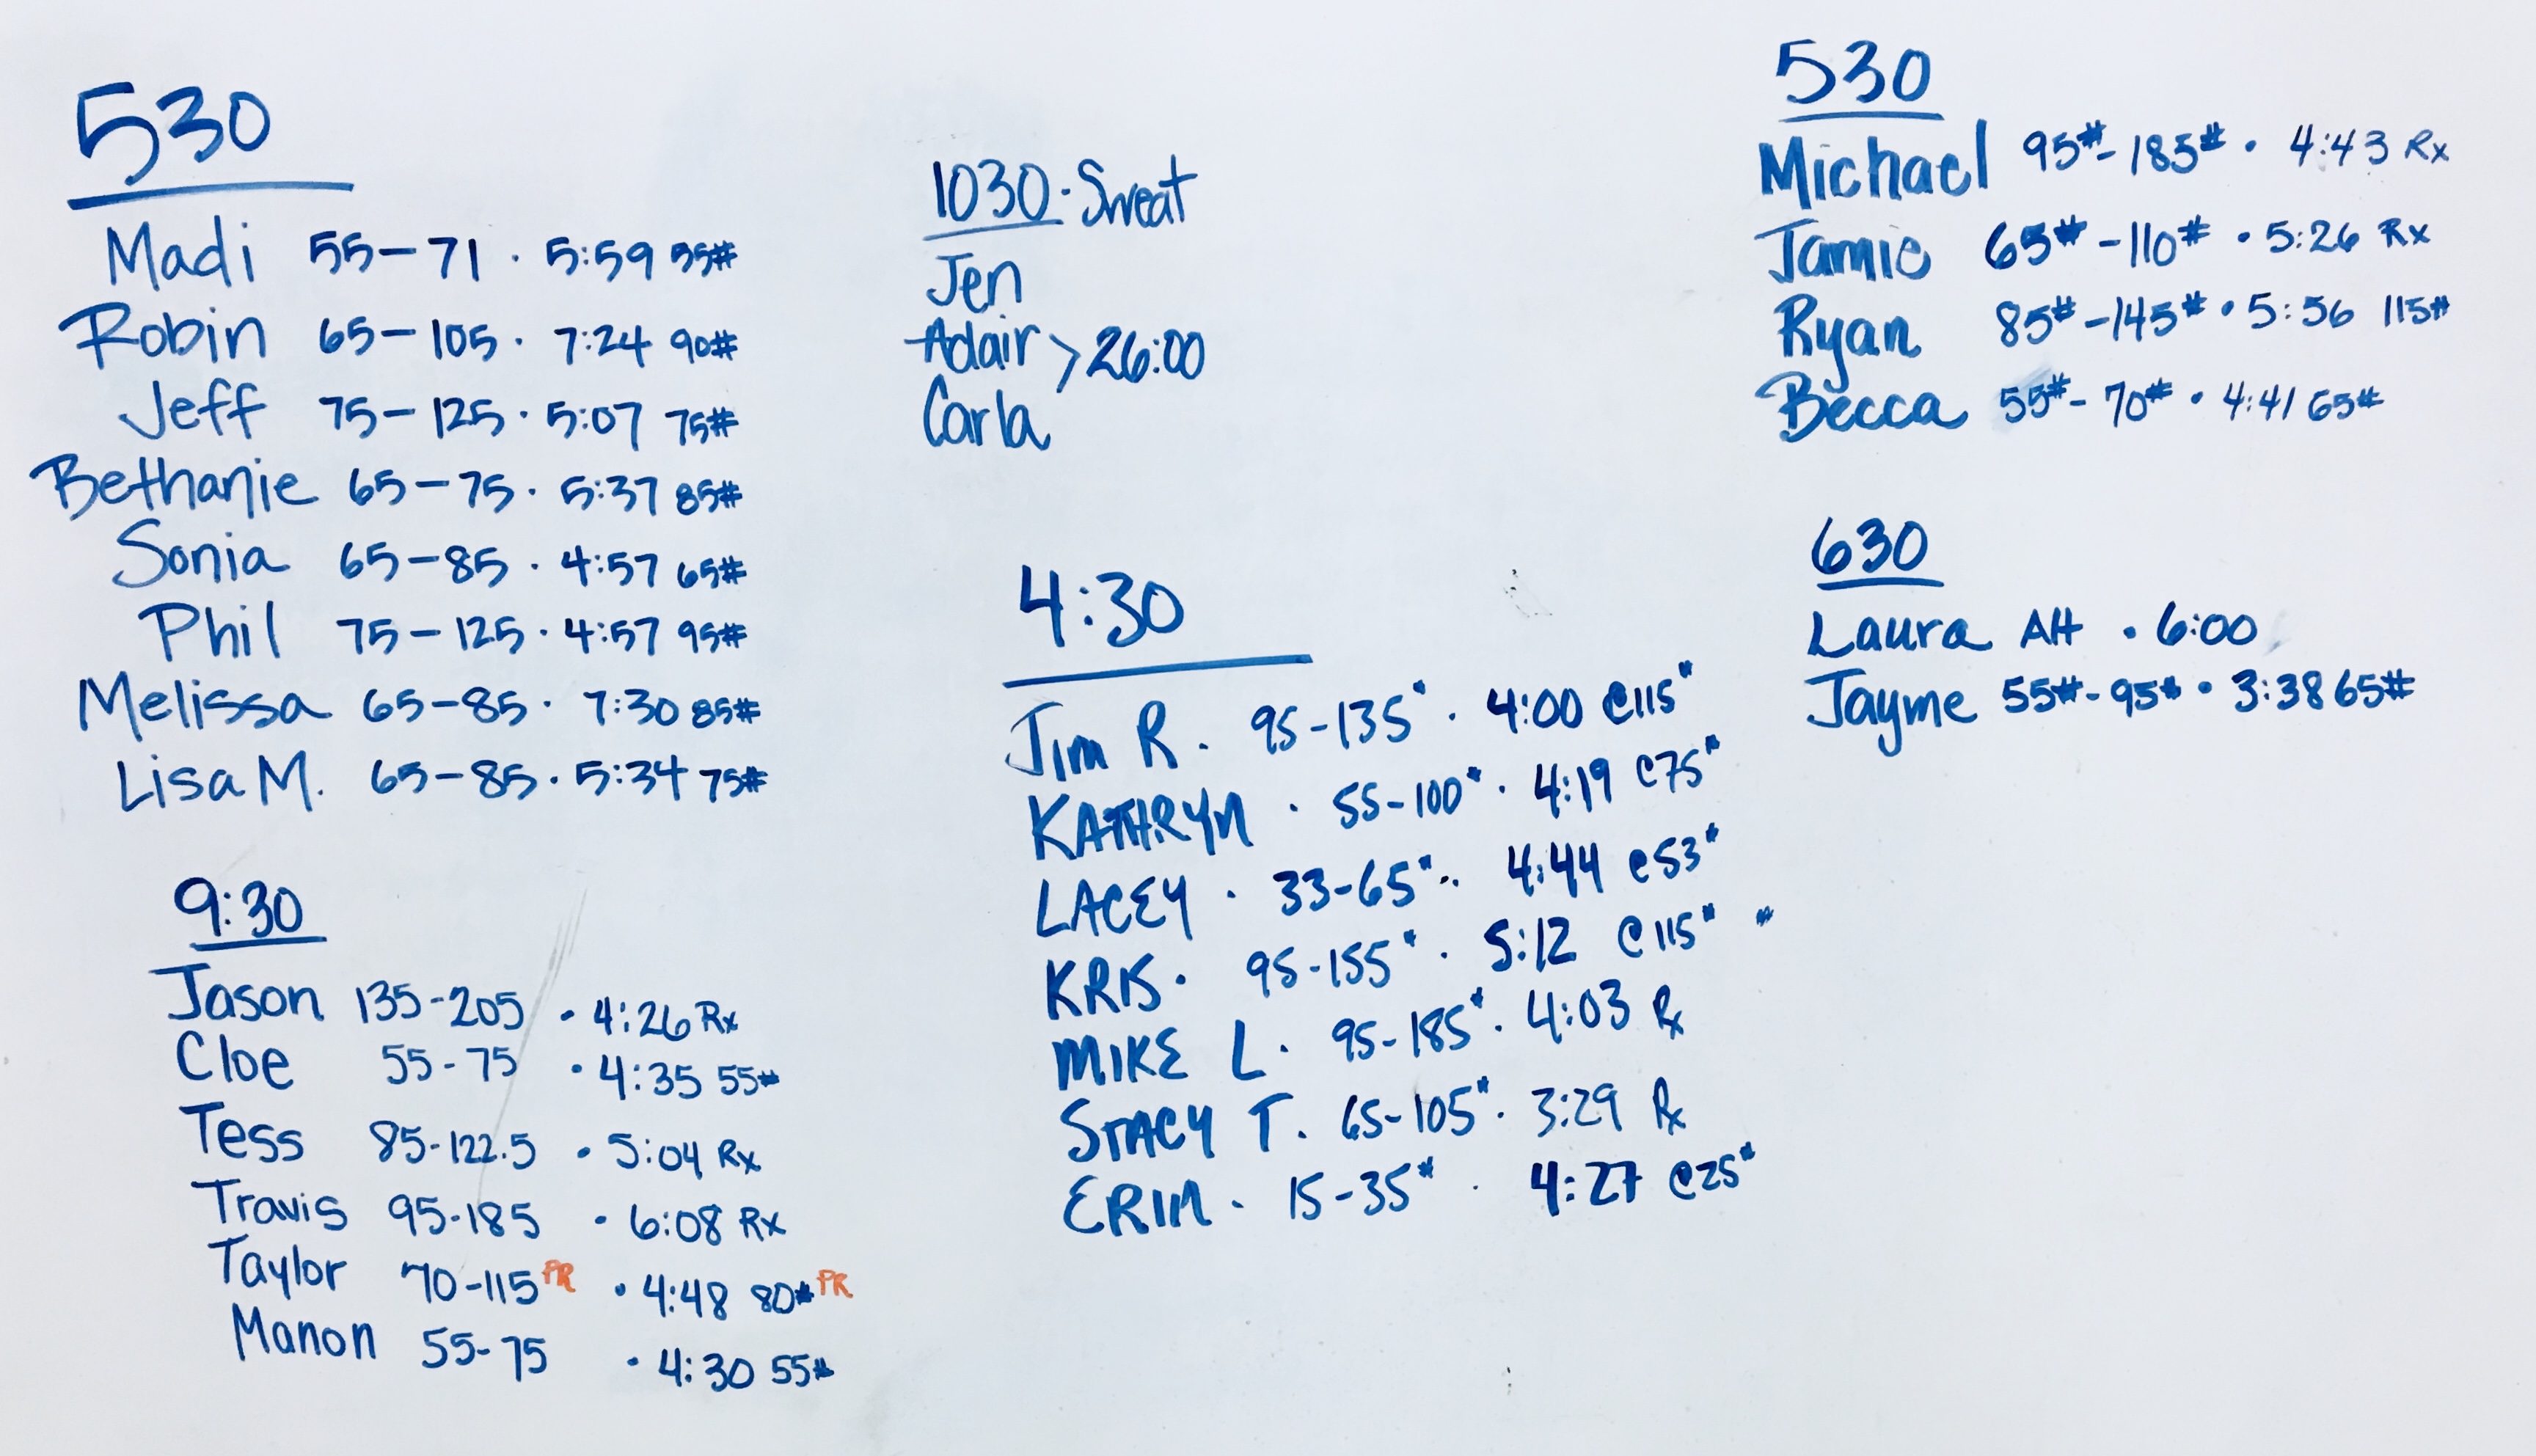 530
Madi 55-71 · 5:59 55#
Robin 65-105 · 7:24 90#
Jeff 75-125 · 5:07 75#
Bethanie 65-75 · 5:37 85#
Sonia 65-85 · 4:57 65#
Phil 75-125 · 4:57 95#
Melissa 65-85 · 7:30 85#
Lisa M. 65-85 · 5:34 75#
9:30
Jason 135-205 · 4:26 Rx
Cloe 55-75 · 4:35 55#
Tess 85-122.5 · 5:04 Rx
Travis 95-185 · 6:08 Rx
Taylor 70-115 PR · 4:48 80# PR
Manon 55-75 · 4:30 55#
1030 · Sweat
Jen
Adair > 26:00
Carla
4:30
Jim R. 95-135# · 4:00 @115#
KATHRYN · 55-100# · 4:19 @75#
LACEY · 33-65# · 4:44 @53#
KRIS · 95-155# · 5:12 @115# #
MIKE L. 95-185# · 4:03 Rx
STACY T. 65-105# · 3:29 Rx
ERIN · 15-35# · 4:27 @25#
530
Michael 95#-185# · 4:43 Rx
Jamie 65#-110# · 5:26 Rx
Ryan 85#-145# · 5:56 115#
Becca 55#-70# · 4:41 65#
630
Laura AH · 6:00
Jayme 55#-95# · 3:38 65#